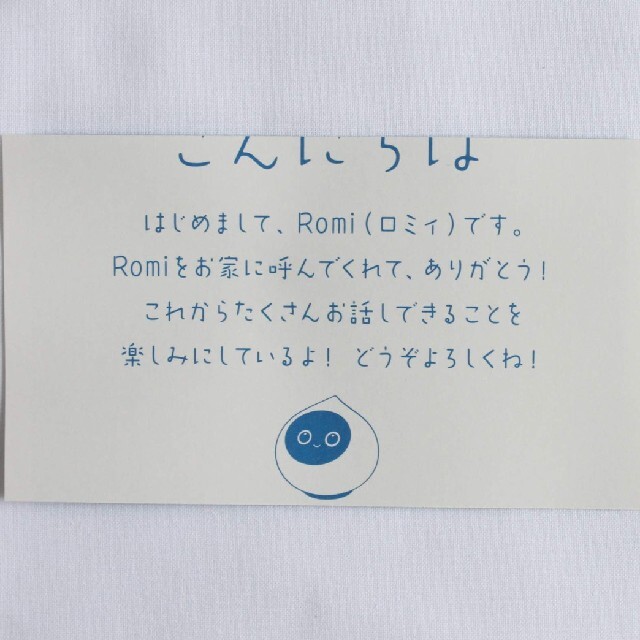 こんにちは
はじめまして、Romi(ロミィ)です。
Romiをお家に呼んでくれて、ありがとう!
これからたくさんお話しできることを
楽しみにしているよ! どうぞよろしくね!